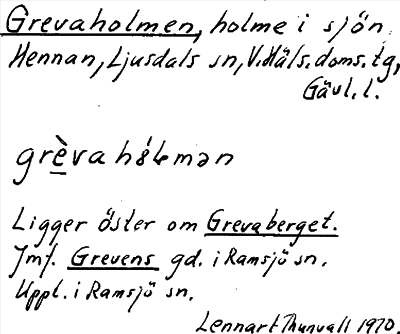 Grevaholmen, holme i sjön
Hennan, Ljusdals sn, V. Häls. doms. tg,
Gävl. l.
grèvahó̀lmən
Ligger öster om Grevaberget.
Jmf. Grevens gd. i Ramsjö sn.
Uppt. i Ramsjö sn.
Lennart Thunvall 1970.